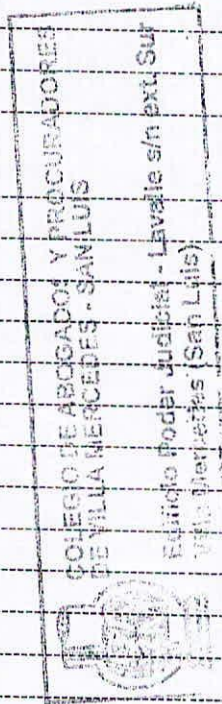 COLEGIO DE ABOGADOS Y PROCURADORES
DE VILLA MERCEDES - SAN LUIS
Edificio Poder Judicial - Lavalle s/n ext. Sur
Villa Mercedes (San Luis)